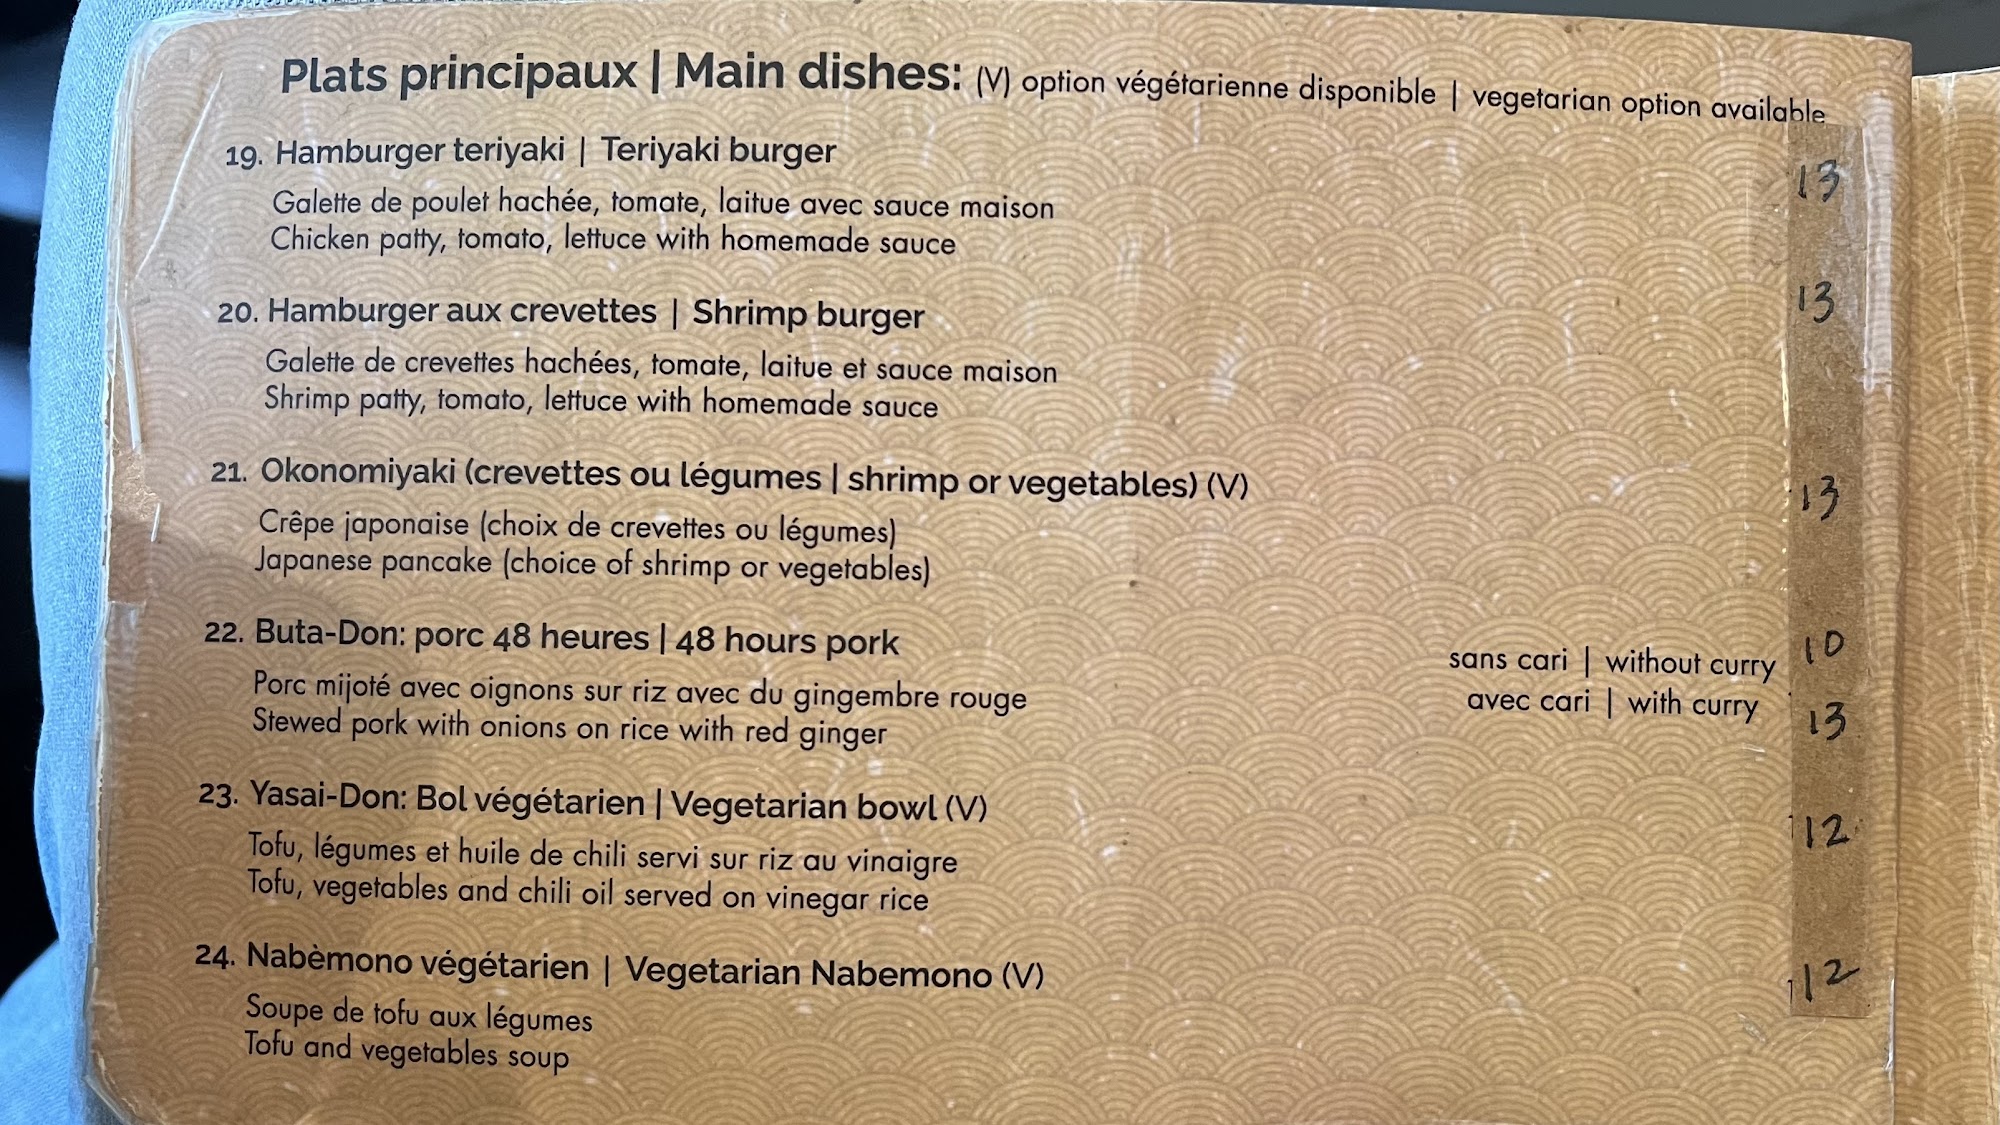 Plats principaux | Main dishes: (V) option végétarienne disponible | vegetarian option available
19. Hamburger teriyaki | Teriyaki burger 13
Galette de poulet hachée, tomate, laitue avec sauce maison
Chicken patty, tomato, lettuce with homemade sauce
20. Hamburger aux crevettes | Shrimp burger 13
Galette de crevettes hachées, tomate, laitue et sauce maison
Shrimp patty, tomato, lettuce with homemade sauce
21. Okonomiyaki (crevettes ou légumes | shrimp or vegetables) (V) 13
Crêpe japonaise (choix de crevettes ou légumes)
Japanese pancake (choice of shrimp or vegetables)
22. Buta-Don: porc 48 heures | 48 hours pork
sans cari | without curry 10
Porc mijoté avec oignons sur riz avec du gingembre rouge
avec cari | with curry 13
Stewed pork with onions on rice with red ginger
23. Yasai-Don: Bol végétarien | Vegetarian bowl (V) 12
Tofu, légumes et huile de chili servi sur riz au vinaigre
Tofu, vegetables and chili oil served on vinegar rice
24. Nabèmono végétarien | Vegetarian Nabemono (V) 12
Soupe de tofu aux légumes
Tofu and vegetables soup